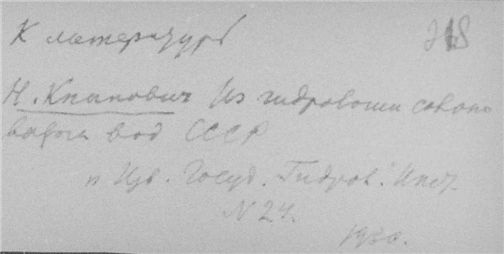 К литературѣ
Н. Книпович Из гидрологии солоно
ватых вод СССР
"Изв. Госуд. Гидрол. Инст."
N 24.
1930.